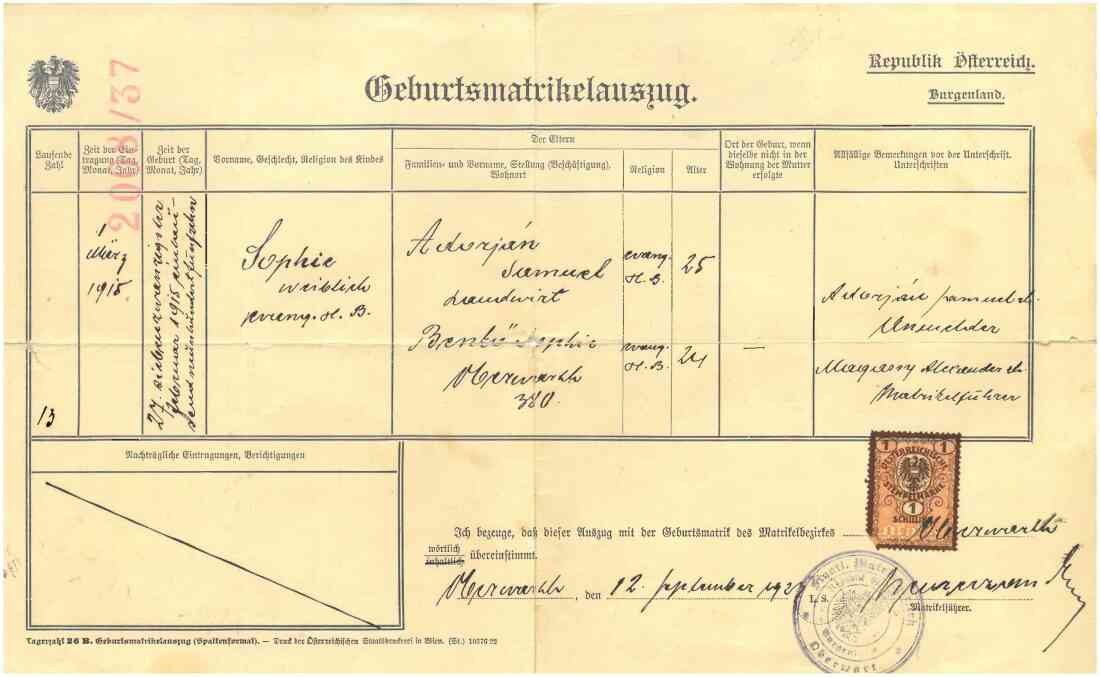 Republik Österreich.
Burgenland.
Geburtsmatrikelauszug.
2008/37
Laufende Zahl
Zeit der Ein-
tragung (Tag,
Monat, Jahr)
Zeit der
Geburt (Tag,
Monat, Jahr)
Vorname, Geschlecht, Religion des Kindes
Der Eltern
Familien- und Vorname, Stellung (Beschäftigung),
Wohnort
Religion
Alter
Ort der Geburt, wenn
dieselbe nicht in der
Wohnung der Mutter
erfolgte
Allfällige Bemerkungen vor der Unterschrift.
Unterschriften
13
1
März
1915
27. siebenzwanzigster
Februar 1915
Sophie
weiblich
evang. H. B.
Adorján
Samuel
Landwirt
evang.
H. B.
25
Benkö Sophie
Oberwarth
380.
evang.
H. B.
24
—
Adorján Samuel
Matrikelführer
Nachträgliche Eintragungen, Berichtigungen
1 1
ÖSTERREICHISCHE
STEMPELMARKE
1
SCHILLING
Ich bezeuge, daß dieser Auszug mit der Geburtsmatrik des Matrikelbezirkes Oberwarth
wörtlich
inhaltlich
übereinstimmt.
Oberwarth, den 12. September
L. S.
Matrikelführer.
Oberwart
Tagerzahl 26 B. Geburtsmatrikelauszug (Spaltenformat). — Druck der Österreichischen Staatsdruckerei in Wien. (St.) 10376 22